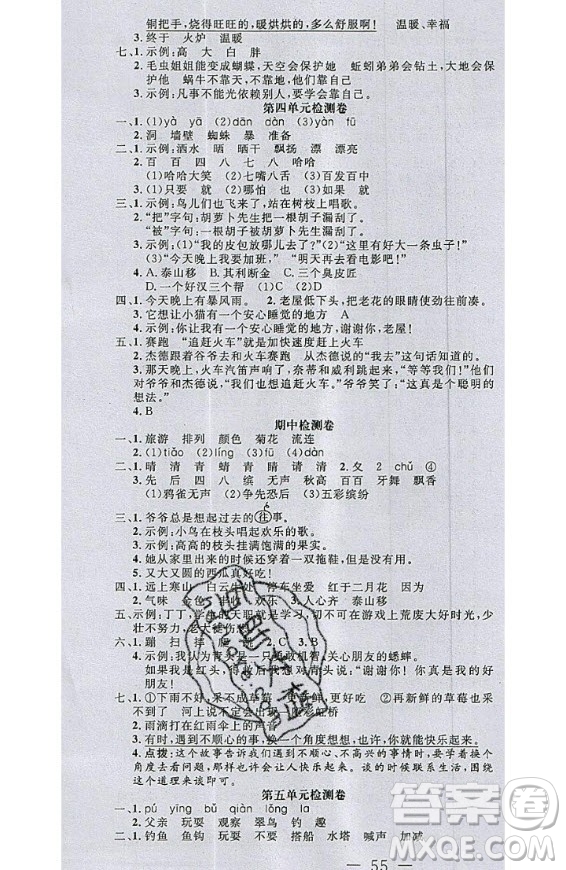 铜把手,烧得旺旺的,暖烘烘的,多么舒服啊! 温暖、幸福
3. 终于 火炉 温暖
七、1. 示例:高 大 白 胖
2. 毛虫姐姐能变成蝴蝶,天空会保护她 蚯蚓弟弟会钻土,大地会保护他 蜗牛不靠天,不靠地,靠自己
3. 示例:凡事不能光依赖别人,要学会依靠自己。
第四单元检测卷
一、1. (1)yà yā (2)dān dàn (3)yàn fū
2. 洞 墙壁 蜘蛛 暴 准备
二、1. 示例:洒水 晒晒 晒干 飘扬 漂 漂亮
2. 百 百 四 八 七 八 哈哈
(1)哈哈大笑 (2)七嘴八舌 (3)百发百中
3. (1)只要 就 (2)哪怕 也 (3)只有 才
三、1. 示例:鸟儿们也飞来了,站在树枝上唱歌。
2. “把”字句:胡萝卜先生把一根胡子漏刮了。
“被”字句:一根胡子被胡萝卜先生漏刮了。
3. 示例:(1)“我的皮包放哪儿去了?” (2)“我今天挖出了好大一条虫子!” (3)“今天晚上我要加班,” “明天再去看电影吧!”
4. A. 泰山移 B. 其利断金 C. 臭皮匠
D. 一个好汉三个帮 (1)D (2)C
四、1. 今天晚上有暴风雨。 2. 老屋低下头,把老花的眼睛使劲往前凑。
3. 它想让小猫有一个安心睡觉的地方 A
4. 示例:我有一个安心睡觉的地方,谢谢你,老屋!
五、1. 赛跑 “追赶火车”就是加快速度赶上火车
2. 杰德跟着爷爷和火车赛跑 从杰德说的“我去”这句话知道的。
3. 那天晚上,火车汽笛声响了,奈蒂和威利跳起来,“等等我们!”他们对爷爷和杰德说,“我们也想追赶火车。”爷爷笑了:“这真是个聪明的想法。”
4. B
期中检测卷
一、1. 旅游 排列 颜色 菊花 流连
2. (1)tiǎo (2)líng (3)fū (4)dān
二、1. 晴 清 青 蜻 青 睛 请 2. 夂 2 chǔ ④
3. 先 后 四 八 缤 无声 秋高 百百 牛毛 舞舞 飘香
(1)鸦雀无声 (2)争先恐后 (3)五彩缤纷
三、1. 爷爷总是想起过去的往事。
2. 示例:小鸟在枝头唱起欢乐的歌。
3. 示例:高高的枝头挂满饱满的果实。
4. 出来的时候她还穿着一双拖鞋,但是有什么用呢?
5. 又大又圆的西瓜真好吃!
四、1. 远上寒山 白云生处 停车坐爱 红于二月花 因为
2. 气味 金色 丰收 欢乐 3. 人心齐 泰山移
五、示例:丁丁,学生的天职就是学习,切不可在游戏上荒废大好时光,少壮不努力,老大徒伤悲。
3. 示例:从我认为青头是一只勇敢机智、关心朋友的蟋蟀。
如果我是红头,得救后我会对青头说,“谢谢你!你真是我的好朋友!”
2. 雨滴打在红雨伞上的声音
3. 有时,遇到不顺心的事,换一个角度想想,也许你就能快乐起来。
4. 点拨:这个故事告诉我们遇到不顺心、不高兴的事情时,要学着换个角度去想,这样做会让人快乐一些。阅读时,联系生活,围绕这个道理来谈即可。
第五单元检测卷
一、1. pú yīng bǔ qiàn lǒng la
2. 父亲 玩耍 观察 翠鸟 钓 趣
二、1. 钓鱼 鱼钩 玩耍 不要 搭船 水塔 喊声 加减
— 55 —